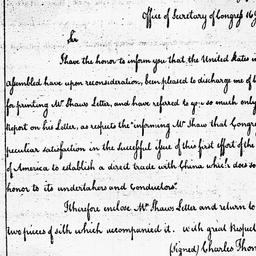 Office of Secretary of Congress
Sir
I have the honor to inform you that the United States in
assembled have upon reconsideration, been pleased to discharge me of t
for printing Mr Shaws Letter, and have referred to you so much only
Report on his Letter, as respects the "informing Mr Shaw that Congre
peculiar satisfaction in the successful issue of this first effort of the
of America to establish a direct trade with China which does so
honor to its undertakers and Conductors"
I therefore enclose Mr Shaws Letter and return to
two pieces of silk which accompanied it. With great Respect
(signed) Charles Thom